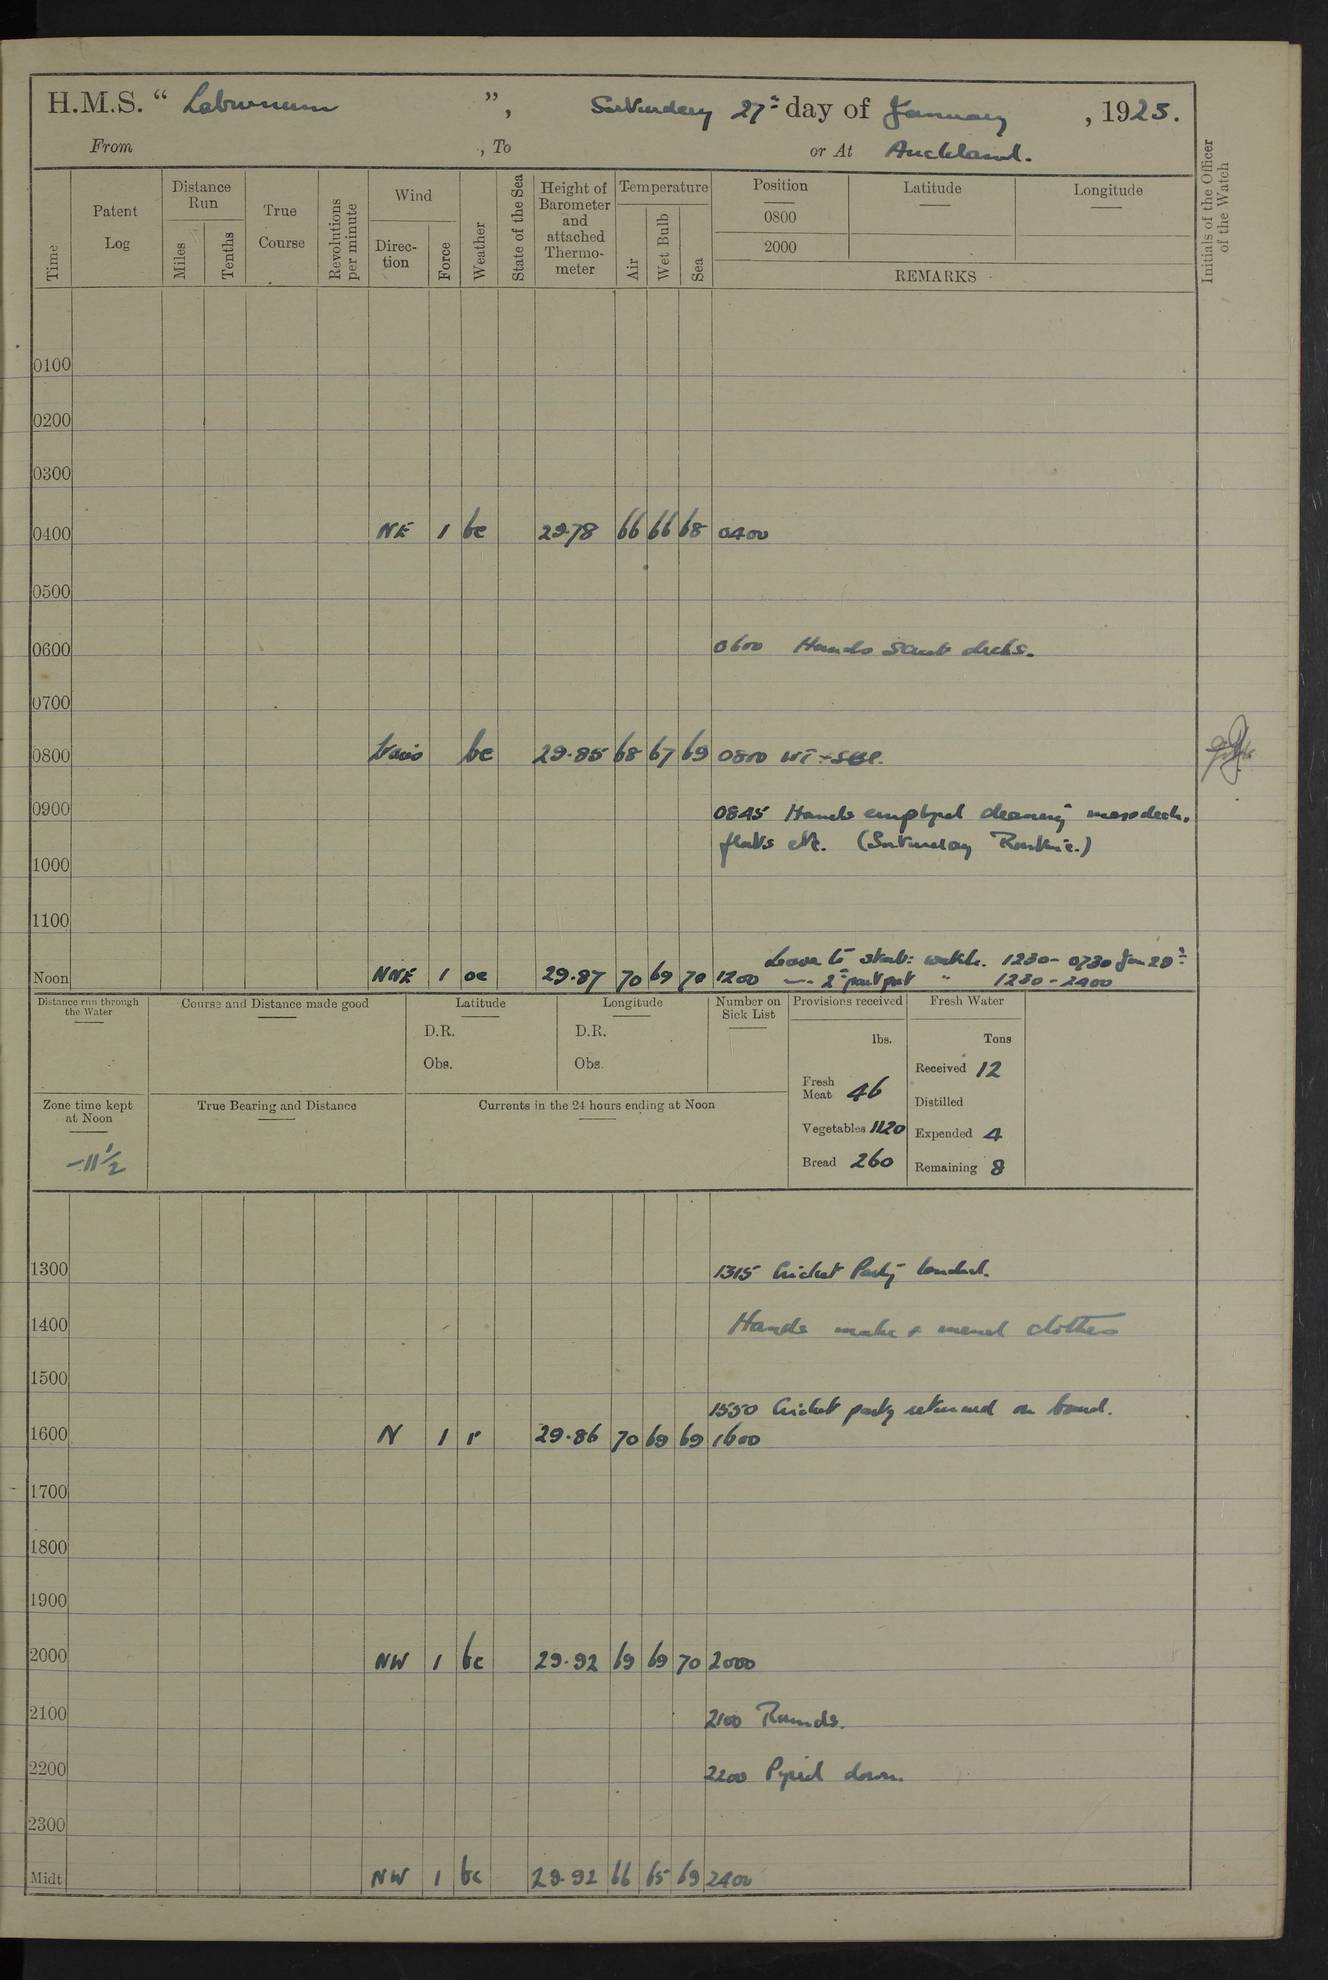 H.M.S. “ Laburnum ”, Saturday 27th day of January, 1923.
From , To or At Auckland.
Time Patent Log Distance Run Miles Tenths True Course Revolutions per minute Wind Direc-tion Force Weather State of the Sea Height of Barometer and attached Thermo-meter Temperature Air Wet Bulb Sea Position 0800 2000 Latitude Longitude REMARKS Initials of the Officer of the Watch
0100
0200
0300
0400 NE 1 bc 29.78 66 66 68 0400
0500
0600 0600 Hands scrub decks.
0700
0800 Vario bc 29.85 68 67 69 0800
0900 0845 Hands employed cleaning messdeck,
flats etc. (Saturday Routine.)
1000
1100
Leave to starb: watch. 1230 - 0730 Jan 29th
Noon NNE 1 oc 29.87 70 69 70 1200 " 2nd part port " 1230 - 2400
Distance run through the Water Course and Distance made good Latitude D.R. Obs. Longitude D.R. Obs. Number on Sick List Provisions received lbs. Fresh Water Tons
Fresh Meat 46 Received 12
Distilled
Zone time kept at Noon True Bearing and Distance Currents in the 24 hours ending at Noon
Vegetables 1120 Expended 4
-11½ Bread 260 Remaining 8
1300 1315 Cricket Party landed.
1400 Hands make & mend clothes
1500
1550 Cricket party returned on board.
1600 N 1 r 29.86 70 69 69 1600
1700
1800
1900
2000 NW 1 bc 29.92 69 69 70 2000
2100 2100 Rounds.
2200 2200 Piped down.
2300
Midt NW 1 bc 29.92 66 65 69 2400